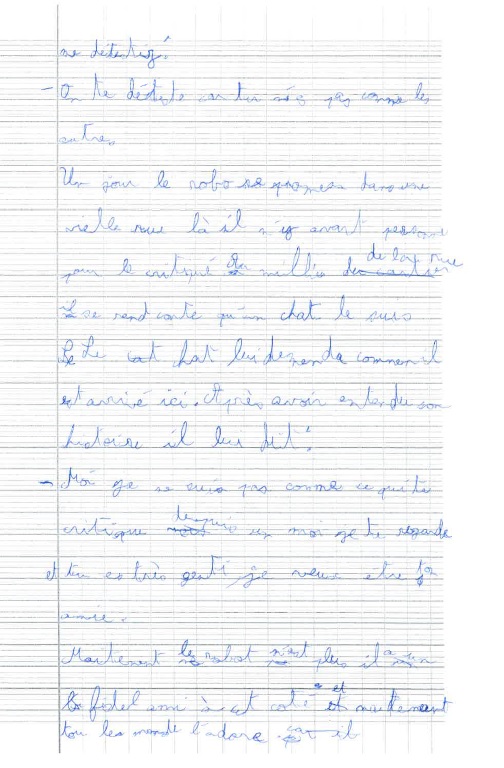 me détestez !
- On te déteste car tu n'és pas comme les
autres.
Un jour le robo se promena dans une
vielle rue là il n'y avait persone
pour le critiqué Au millieu de la rue
Il se rend conte qu'un chat le suis
Le chat lui demenda commen il
est arrivé ici. Après avoir entendu son
histoire il lui dit :
- Moi je ne suis pas comme ce qui te
critique depuis un moi je te regarde
et tu es très genti je veux être ton
amie.
Maitenent le robot n'est plus il a un
fidel ami à cot coté et maitenent
tou les monde l'adore. il